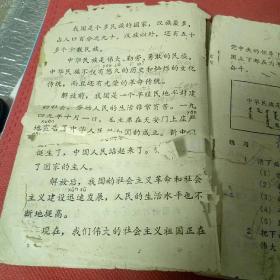 我国是个多民族的国家，汉族最多，
占人口百分之九十，汉族以外，还有五十
多个少数民族。
中华民族是伟大、勤劳、勇敢的民族。
中华民族不仅有悠久的历史和灿烂的文化
传统，而且还有光荣的革命传统。
解放前，我国是一个半殖民地半封建
的社会，劳动人民的生活非常贫苦。一九
四九年十月一日，毛主席在天安门上庄严
地宣告了中华人民共和国的成立。新中国
诞生了，中国人民站起来了。
了国家的主人。
解放后，我国的社会主义革命和社会
主义建设迅速发展，人民的生活水平也不
断地提高。
现在，我们伟大的社会主义祖国正在
党中央的领导
国上下都在为
奋斗。
中华民族
练习
(1)
(2)
(3)
(4)
(5)